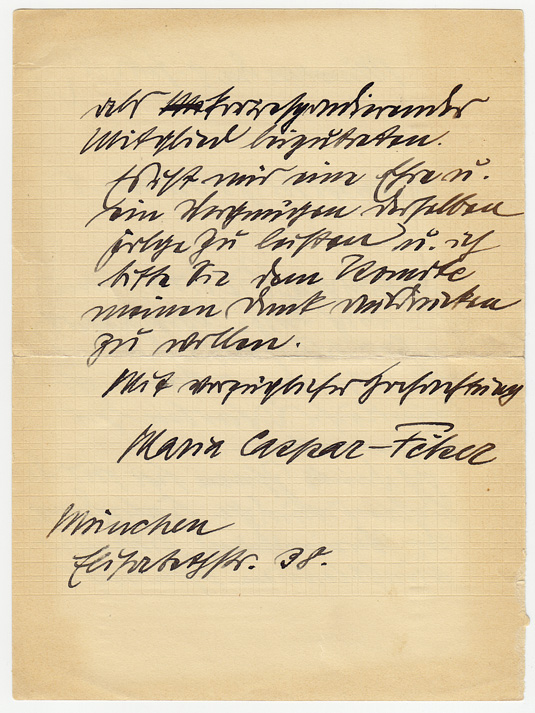 als korrespondierendes
Mitglied beizutreten.
Es ist mir eine Ehre u.
ein Vergnügen derselben
folge zu leisten u. ich
bitte Sie dem Komite
meinen Dank ausdrücken
zu wollen.
Mit vorzüglicher Hochachtung
Maria Caspar-Filser
München
Elisabethstr. 38.